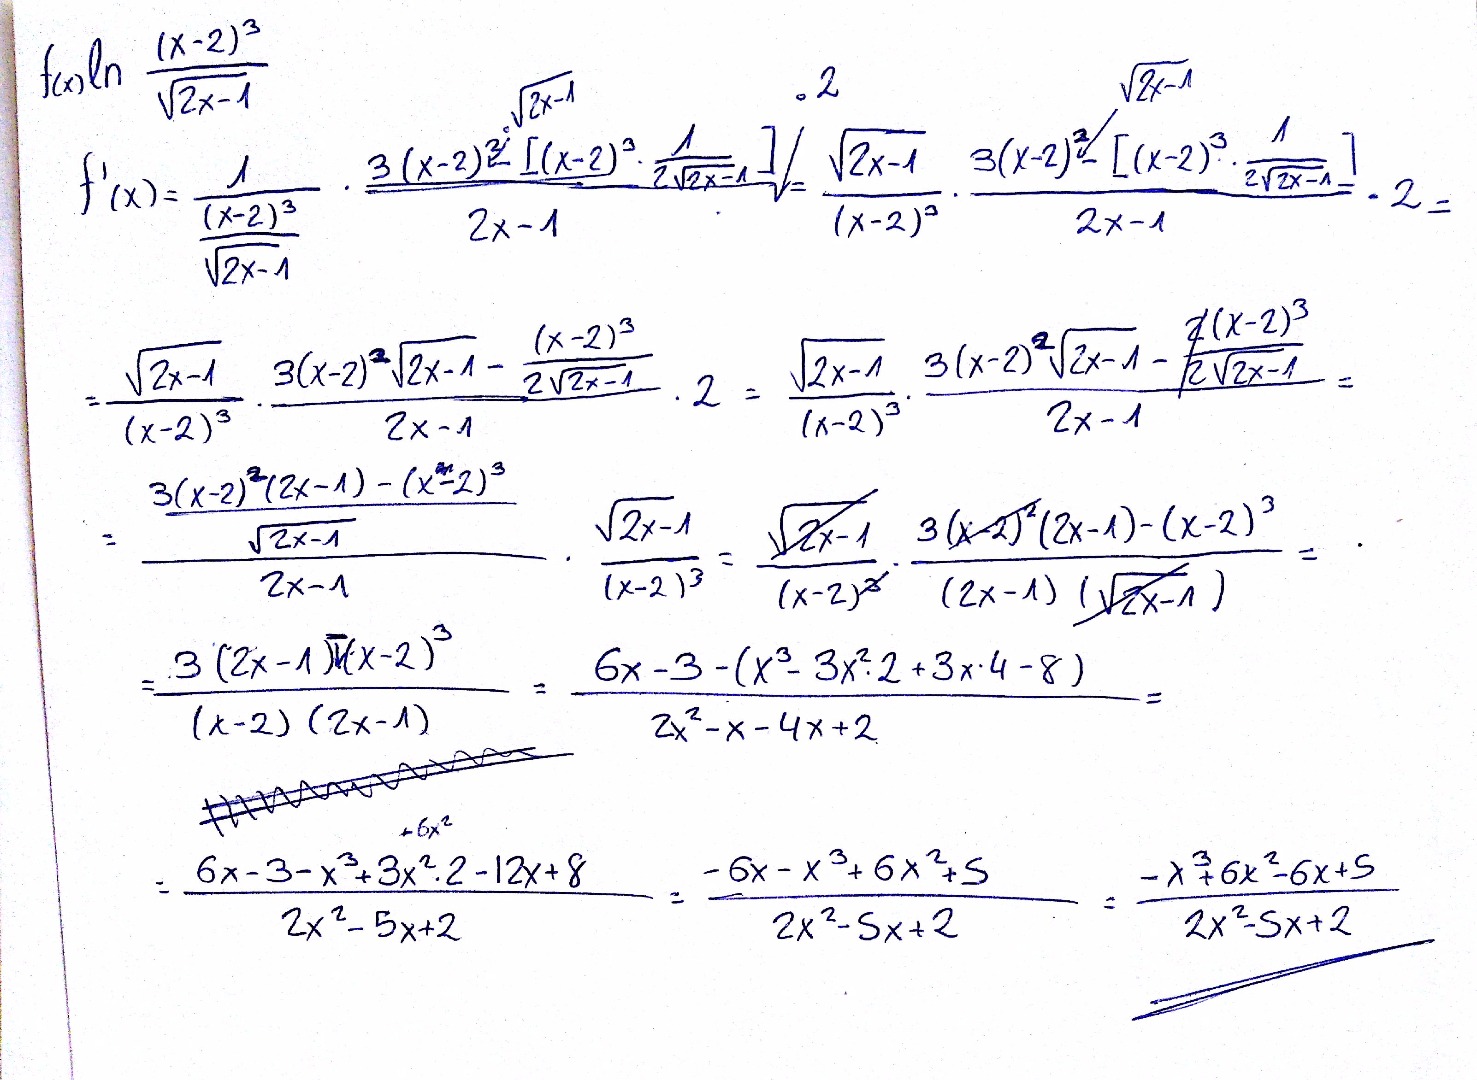 f(x) ln (x-2)³/√(2x-1)
f'(x) = 1/((x-2)³/√(2x-1)) · (3(x-2)² · √(2x-1) - [(x-2)³ · 1/(2√(2x-1))])/(2x-1) · 2 = √(2x-1)/(x-2)³ · (3(x-2)² √(2x-1) - [(x-2)³ · 1/(2√(2x-1))])/(2x-1) · 2 =
= √(2x-1)/(x-2)³ · (3(x-2)²√(2x-1) - (x-2)³/(2√(2x-1)))/(2x-1) · 2 = √(2x-1)/(x-2)³ · (3(x-2)²√(2x-1) - 2(x-2)³/(2√(2x-1)))/(2x-1) =
= ((3(x-2)²(2x-1) - (x-2)³)/√(2x-1))/(2x-1) · √(2x-1)/(x-2)³ = √(2x-1)/(x-2)³ · (3(x-2)²(2x-1) - (x-2)³)/((2x-1)(√(2x-1))) =
= (3(2x-1)-(x-2)³)/((x-2)(2x-1)) = (6x-3-(x³-3x²·2+3x·4-8))/(2x²-x-4x+2) =
+6x²
= (6x-3-x³+3x²·2-12x+8)/(2x²-5x+2) = (-6x-x³+6x²+5)/(2x²-5x+2) = (-x³+6x²-6x+5)/(2x²-5x+2)